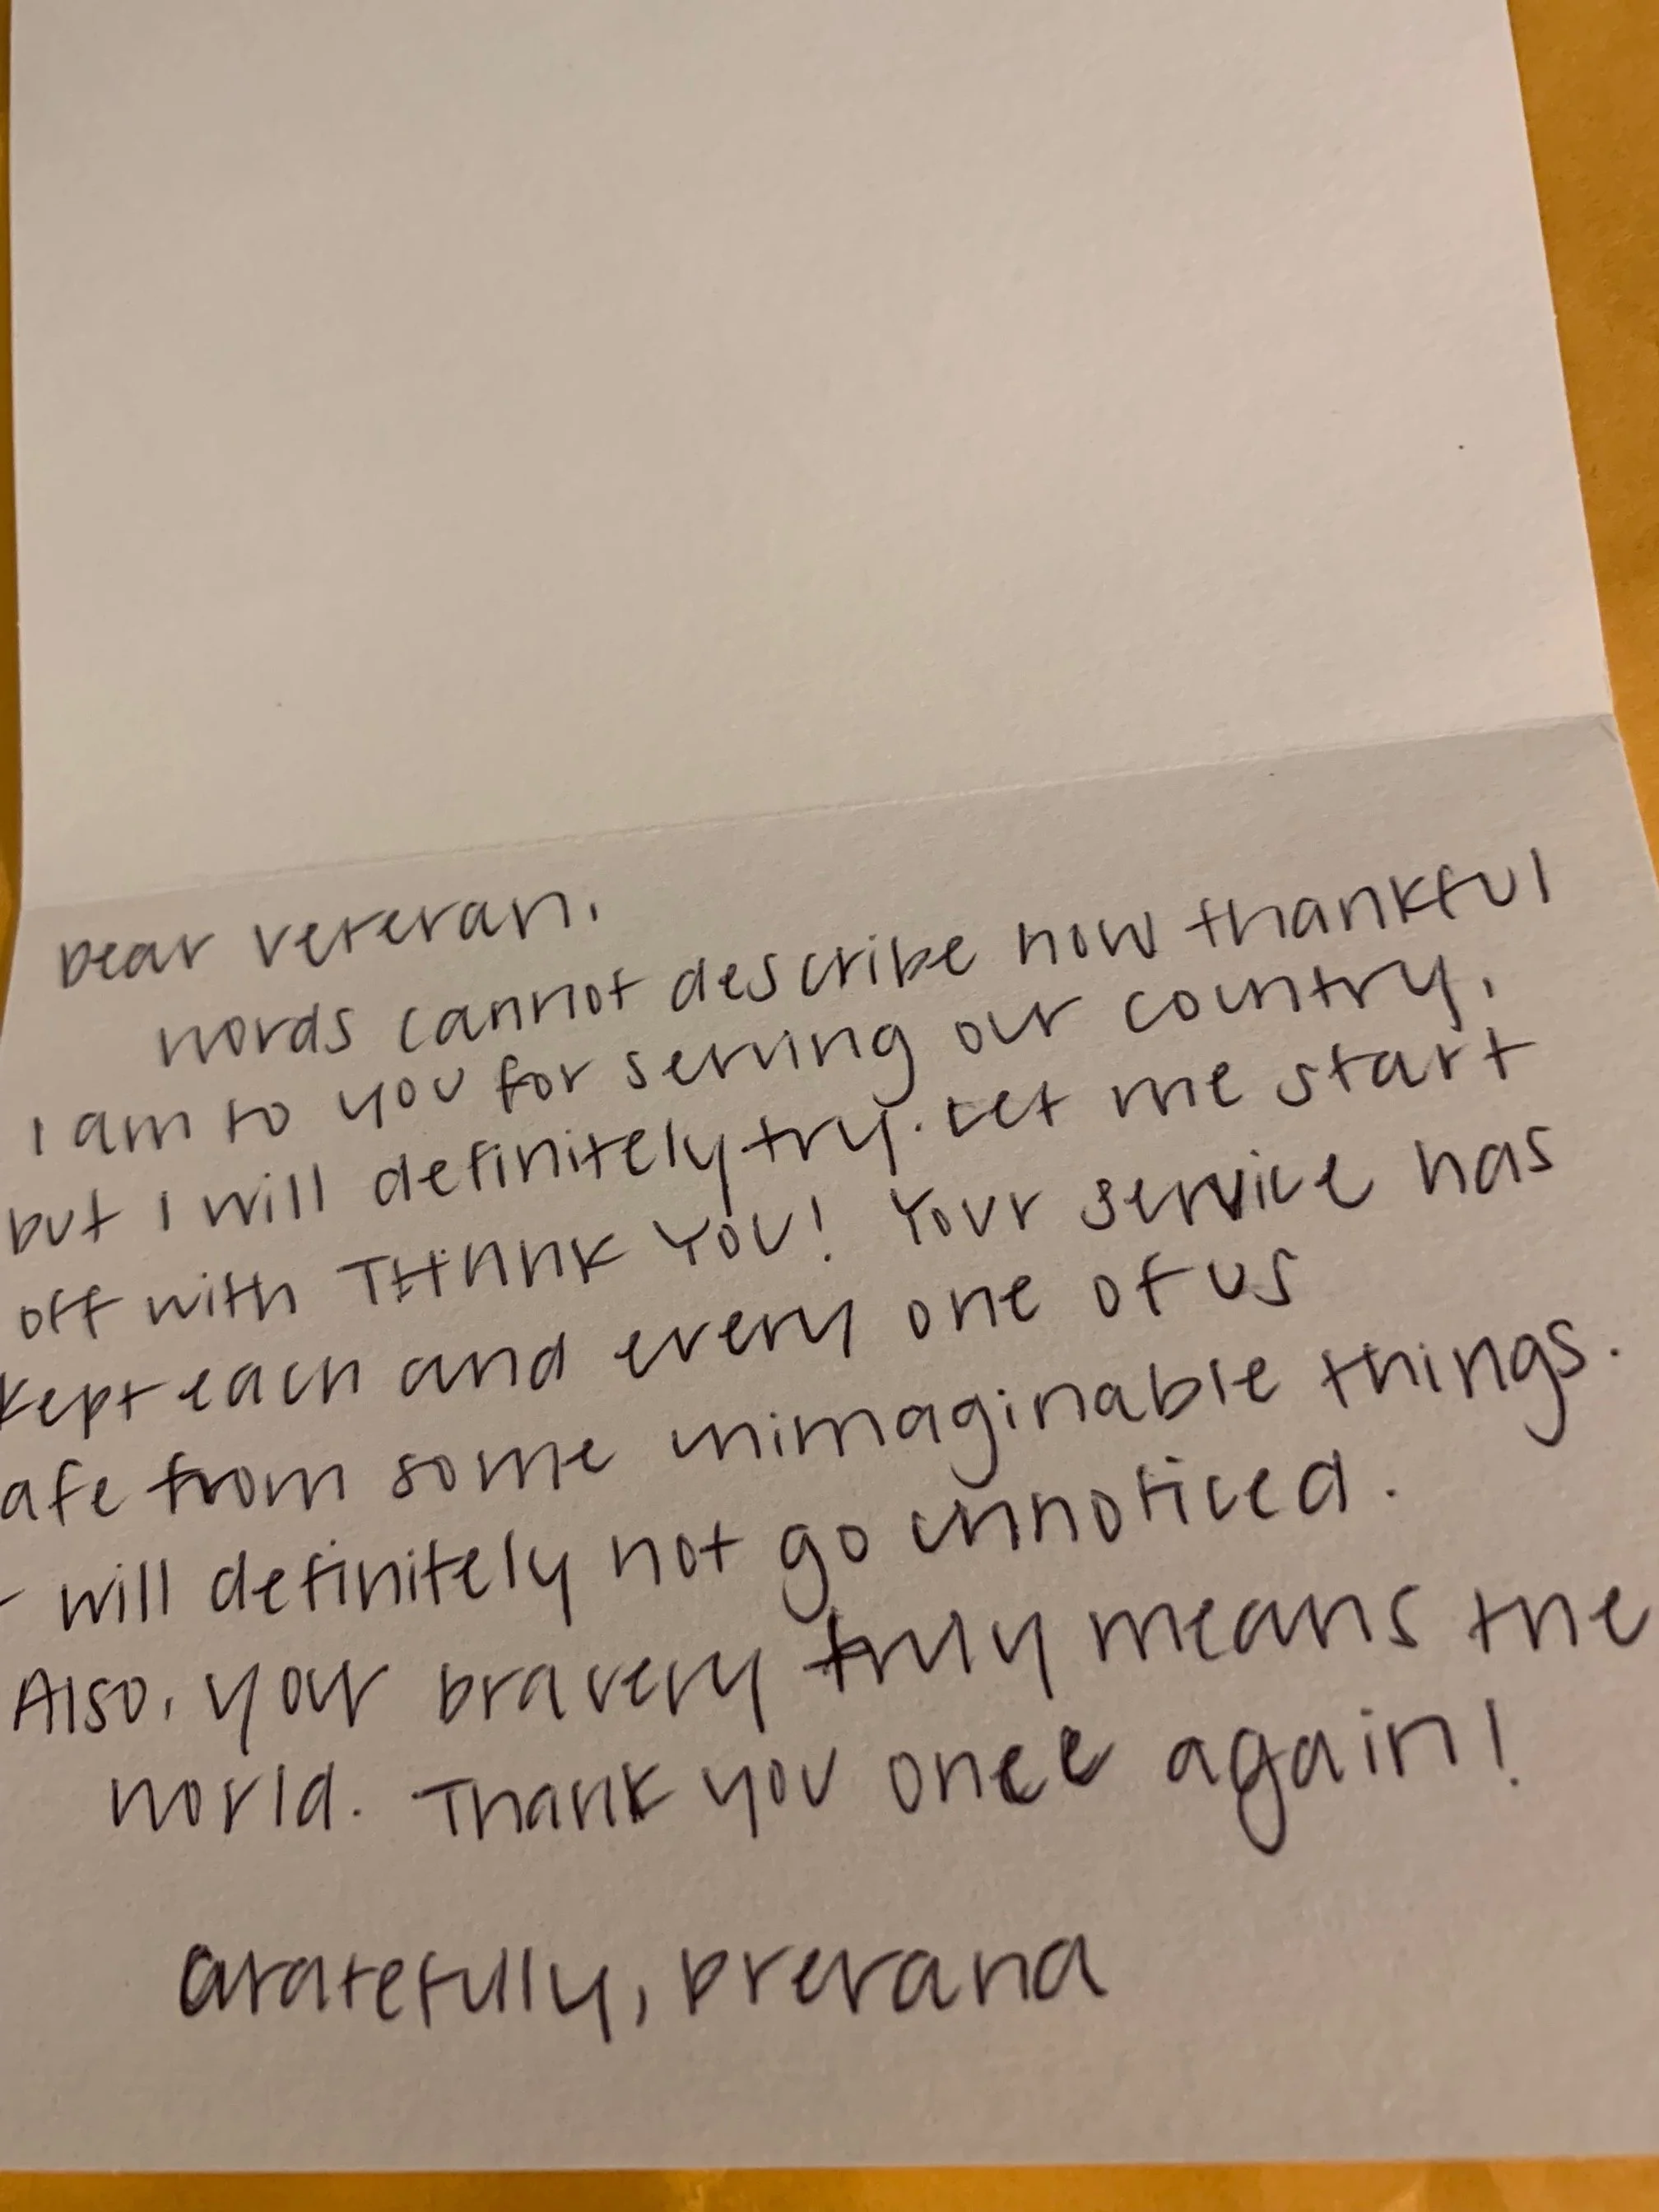 Dear Veteran,
Words cannot describe how thankful
I am to you for serving our country,
but I will definitely try. Let me start
off with THANK YOU! Your service has
kept each and every one of us
afe from some unimaginable things.
will definitely not go unnoticed.
Also, your bravery truly means the
world. Thank you once again!
Gratefully, Prerana